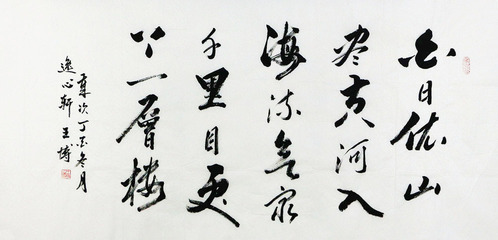 白日依山
尽黄河入
海流欲窮
千里目更
上一層楼
歲次丁酉冬月
逸心軒 王博